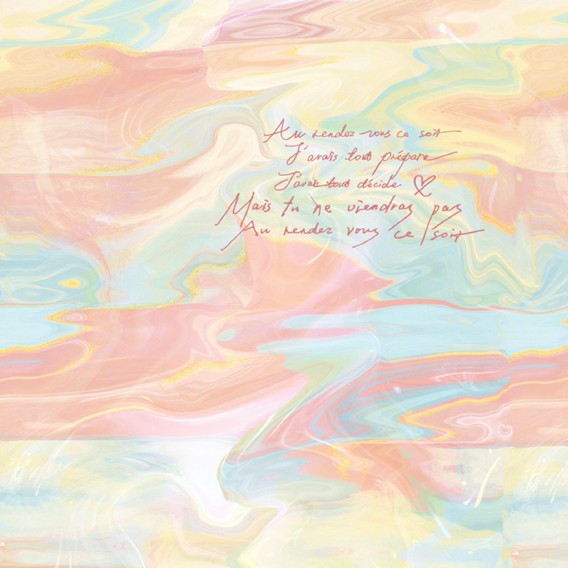 Au rendez-vous ce soir
J'avais tout préparé
J'avais tout décidé
Mais tu ne viendras pas
Au rendez vous ce soir